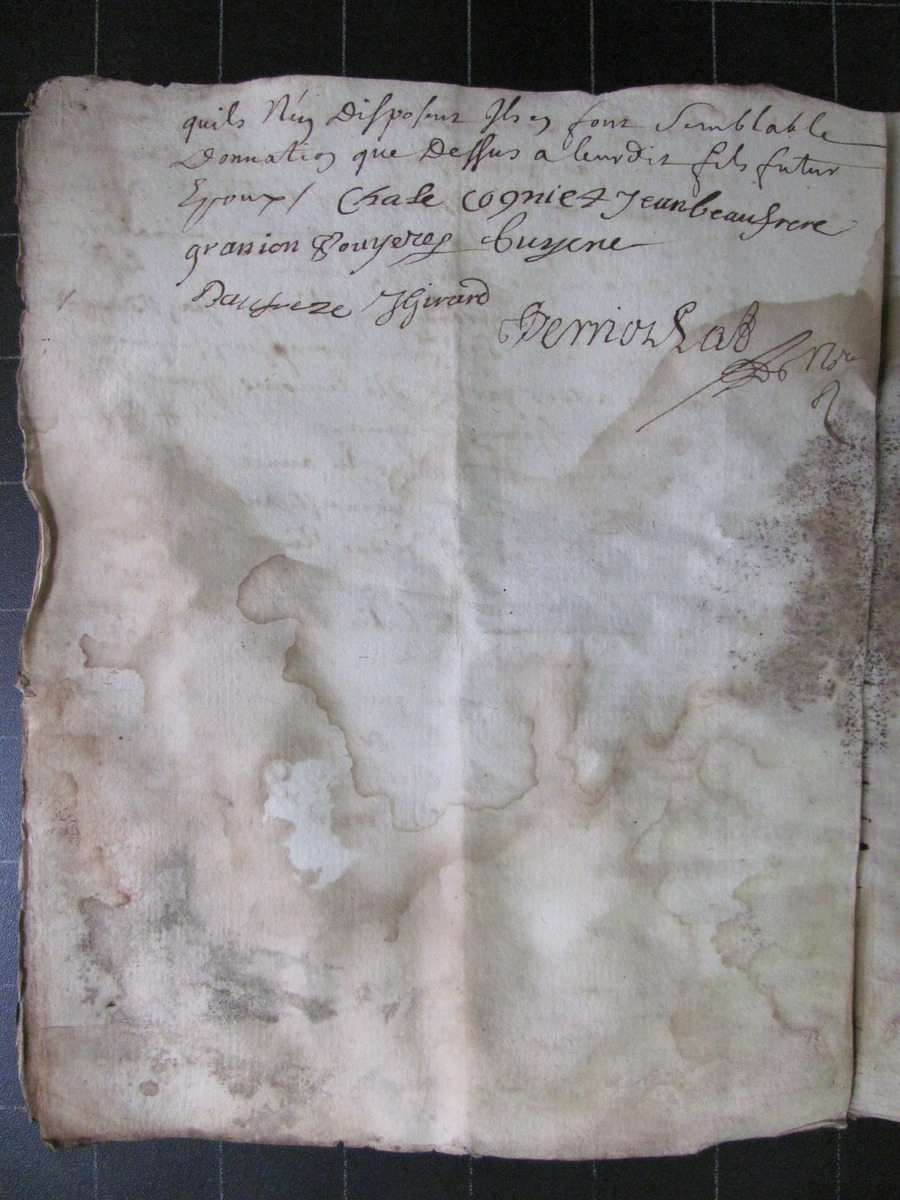 quils N'en Disposent Ils en font Semblable
Donnation que Dessus a leurdit fils futur
Epoux / Chale Cogniet Jean beaufrere
granion Bouyeres
Daufreze JGirard